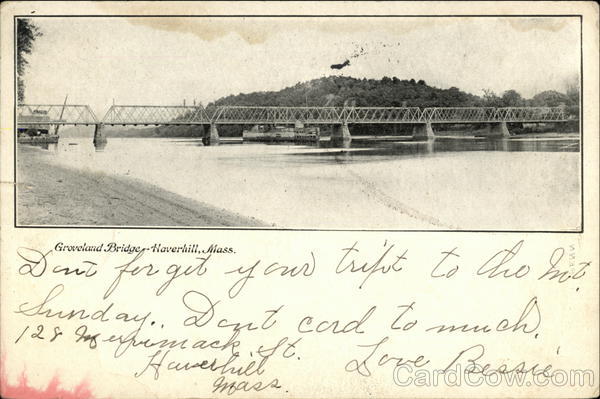 Groveland Bridge--Haverhill, Mass.
Dont forget your tript to the Mt.
Sunday. Dont cord to much.
128 Merrimack St.
Haverhill
Mass.
Love Bessie
CardCow.com